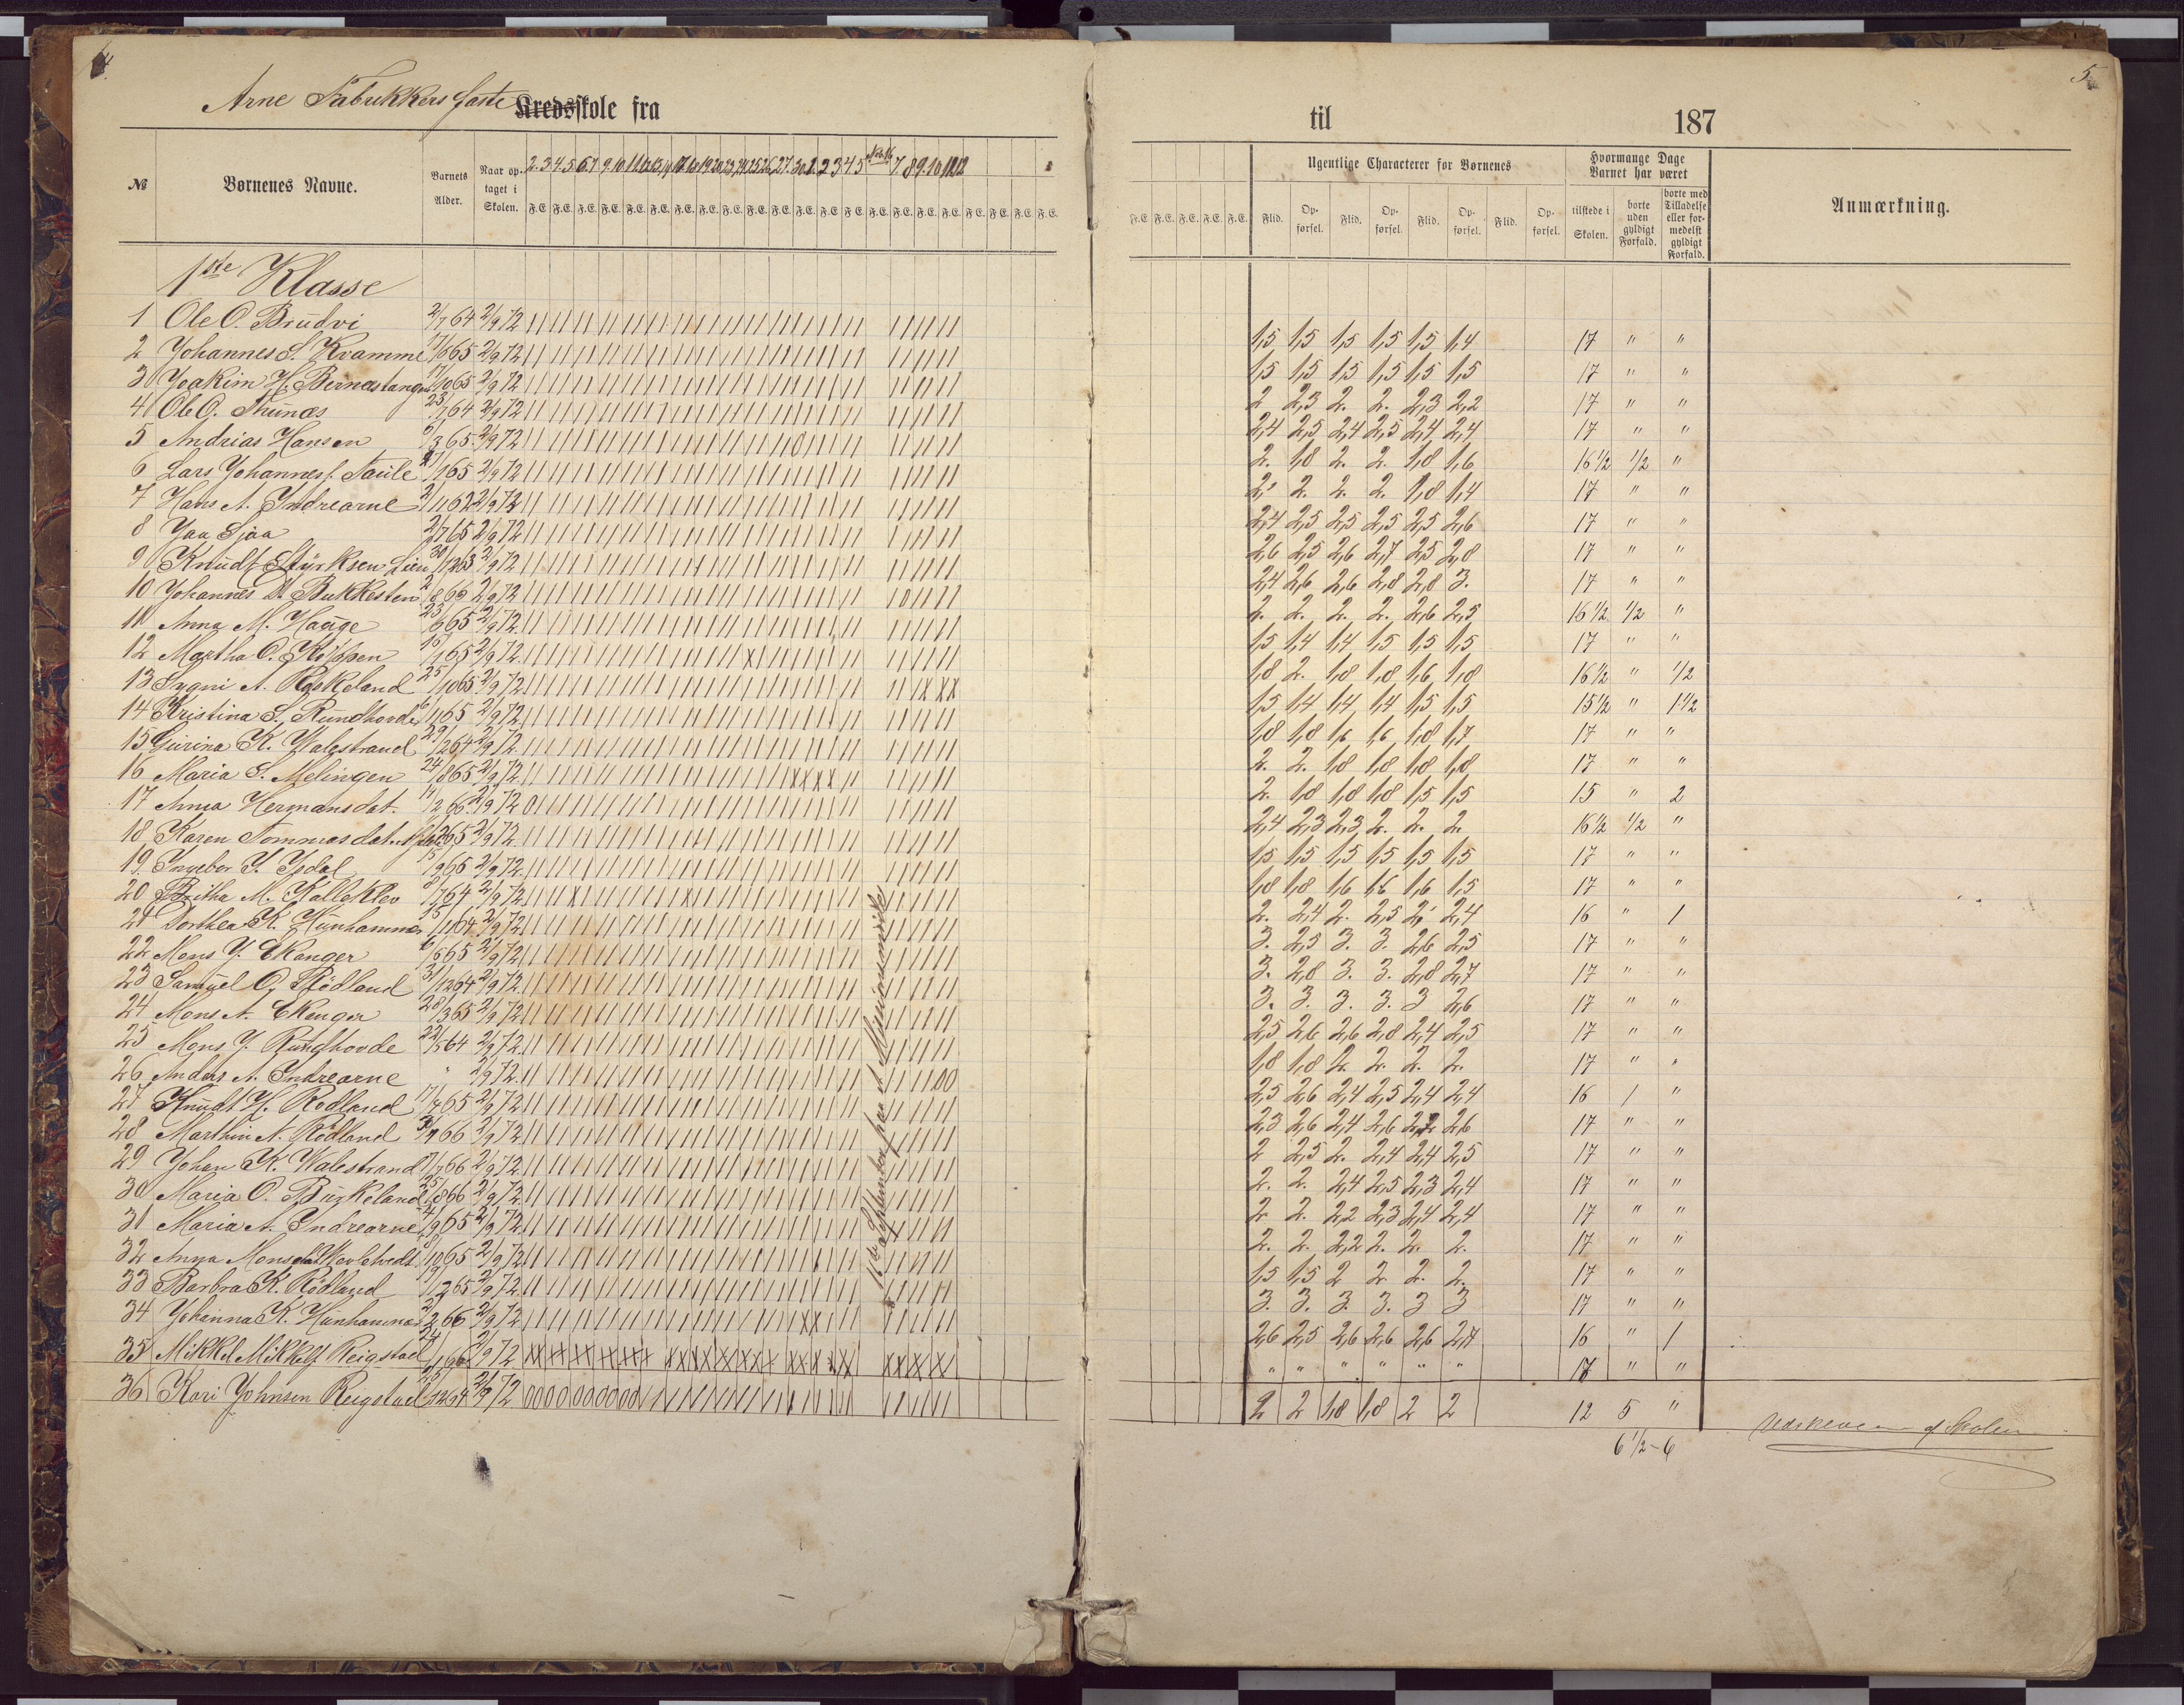 4.
5
Arne Fabrikkers faste Kredsskole fra
til 187
№
Børnenes Navne.
Barnets Alder.
Naar optaget i Skolen.
2. 3 4. 5 6. 7 9 10 11 12 13 23 24 25 26 27. 30. 1. 2 3 4 5 7. 8 9. 10 11 12
F.E. F.E. F.E. F.E. F.E. F.E. F.E. F.E. F.E. F.E. F.E. F.E. F.E. F.E. F.E. F.E. F.E. F.E. F.E. F.E. F.E. F.E.
F.E. F.E. F.E. F.E. F.E.
Ugentlige Characterer for Børnenes
Flid. Opførsel. Flid. Opførsel. Flid. Opførsel. Flid. Opførsel.
Hvormange Dage Barnet har været
tilstede i Skolen.
borte uden gyldigt Forfald.
borte med Tilladelse eller formedelst gyldigt Forfald.
Anmærkning.
1ste Klasse
1 Ole O. Brudvi 2/7 64 2/9 72 1,5 1,5 1,5 1,5 1,5 1,4 17 " "
2 Johannes S. Kvamme 17/6 65 2/9 72 1,5 1,5 1,5 1,5 1,5 1,5 17 " "
3 Joakim H. Bernestangen 17/10 65 2/9 72 2 2,3 2. 2. 2,3 2,2 17 " "
4 Ole O. Thunæs 23/7 64 2/9 72 2,4 2,5 2,4 2,5 2,4 2,4 17 " "
5 Andrias Hansen 6/3 65 2/9 72 2. 1,8 2. 2. 1,8 1,6 16 1/2 1/2 "
6 Lars Johannes s. Taule 1 65 2/9 72 2. 2. 2. 2. 1,8 1,4 17 " "
7 Hans A. Indrearne 2/11 62 2/9 72 2,4 2,5 2,5 2,5 2,5 2,6 17 " "
8 2/7 65 2/9 72 2,6 2,5 2,6 2,7 2,5 2,8 17 " "
9 Knudt Styrksen Lien 30/12 63 2/9 72 2,4 2,6 2,6 2,8 2,8 3. 17 " "
10 Johannes D. Bukkesten 2/8 66 2/9 72 2. 2. 2. 2. 2,6 2,5 16 1/2 1/2 "
11 Anna M. Hauge 23/6 65 2/9 72 1,5 1,4 1,4 1,5 1,5 1,5 17 " "
12 Martha O. Köppen 15/1 65 2/9 72 1,8 2. 1,8 1,8 1,6 1,8 16 1/2 " 1/2
13 Sygni A. Röskeland 25/10 65 2/9 72 1,5 1,4 1,4 1,4 1,5 1,5 15 1/2 " 1 1/2
14 Kristina S. Rundhovde 6/11 65 2/9 72 1,8 1,8 1,6 1,6 1,8 1,7 17 " "
15 Gurina K. Walestrand 29/12 64 2/9 72 2. 2. 1,8 1,8 1,8 1,8 17 " "
16 Maria S. Melingen 24/8 65 2/9 72 2. 1,8 1,8 1,8 1,5 1,5 15 " 2
17 Anna Hermansdat. 14/2 66 2/9 72 2,4 2,3 2,3 2. 2. 2. 16 1/2 1/2 "
18 Karen Tommasdat. 65 2/9 72 1,5 1,5 1,5 1,5 1,5 1,5 17 " "
19. Ingebor Y. Ysdal 15/9 65 2/9 72 1,8 1,8 1,6 1,6 1,6 1,5 17 " "
20 Britha M. Kalleklev 8/7 64 2/9 72 2. 2,4 2. 2,5 2. 2,4 16 " 1
21 Dorthea K. Hunhammer 15/11 64 2/9 72 3. 2,5 3. 3. 2,6 2,5 17 " "
22 Mons Y. Ekanger 6/6 65 2/9 72 3. 2,8 3. 3. 2,8 2,7 17 " "
23 Samuel O. Rödland 31/12 64 2/9 72 3. 3. 3. 3. 3 2,6 17 " "
24 Mons A. Ekenger 28/3 65 2/9 72 2,5 2,6 2,6 2,8 2,4 2,5 17 " "
25 Mons Y. Rundhovde 22/5 64 2/9 72 1,8 1,8 2. 2. 2. 2. 17 " "
26 Anders A. Indrearne " 2/9 72 2,5 2,6 2,4 2,5 2,4 2,4 16 1 "
27 Knudt H. Rödland 11/7 65 2/9 72 2,3 2,6 2,4 2,6 2,2 2,6 17 " "
28 Marthin A. Rödland 66 2/9 72 2 2,5 2. 2,4 2,4 2,5 17 " "
29 Johan K. Walestrand 7/7 66 2/9 72 2. 2. 2,4 2,5 2,3 2,4 17 " "
30 Maria O. Burkeland 25/8 66 2/9 72 2. 2. 2,2 2,3 2,4 2,4 17 " "
31 Maria A. Indrearne 4/9 65 2/9 72 2. 2. 2,2 2. 2. 2. 17 " "
32 Anna Monsdat 8/10 65 2/9 72 1,5 1,5 2 2 2. 2. 17 " "
33 Barbra K. Rödland 19/12 65 2/9 72 3. 3. 3. 3. 3 3 17 " "
34 Johanna K. Hunhammer 2/2 66 2/9 72 2,6 2,5 2,6 2,6 2,6 2,7 16 " 1
35 Mikkel Mikkels. Reigstad 24/1 66 2/9 72 " " " " " " 17 " "
36 Kari Johnsen Reigstad 12 64 2/9 72 2 2 1,8 1,8 2 2 12 5 " af Skolen
6 1/2 - 6
16de September fri